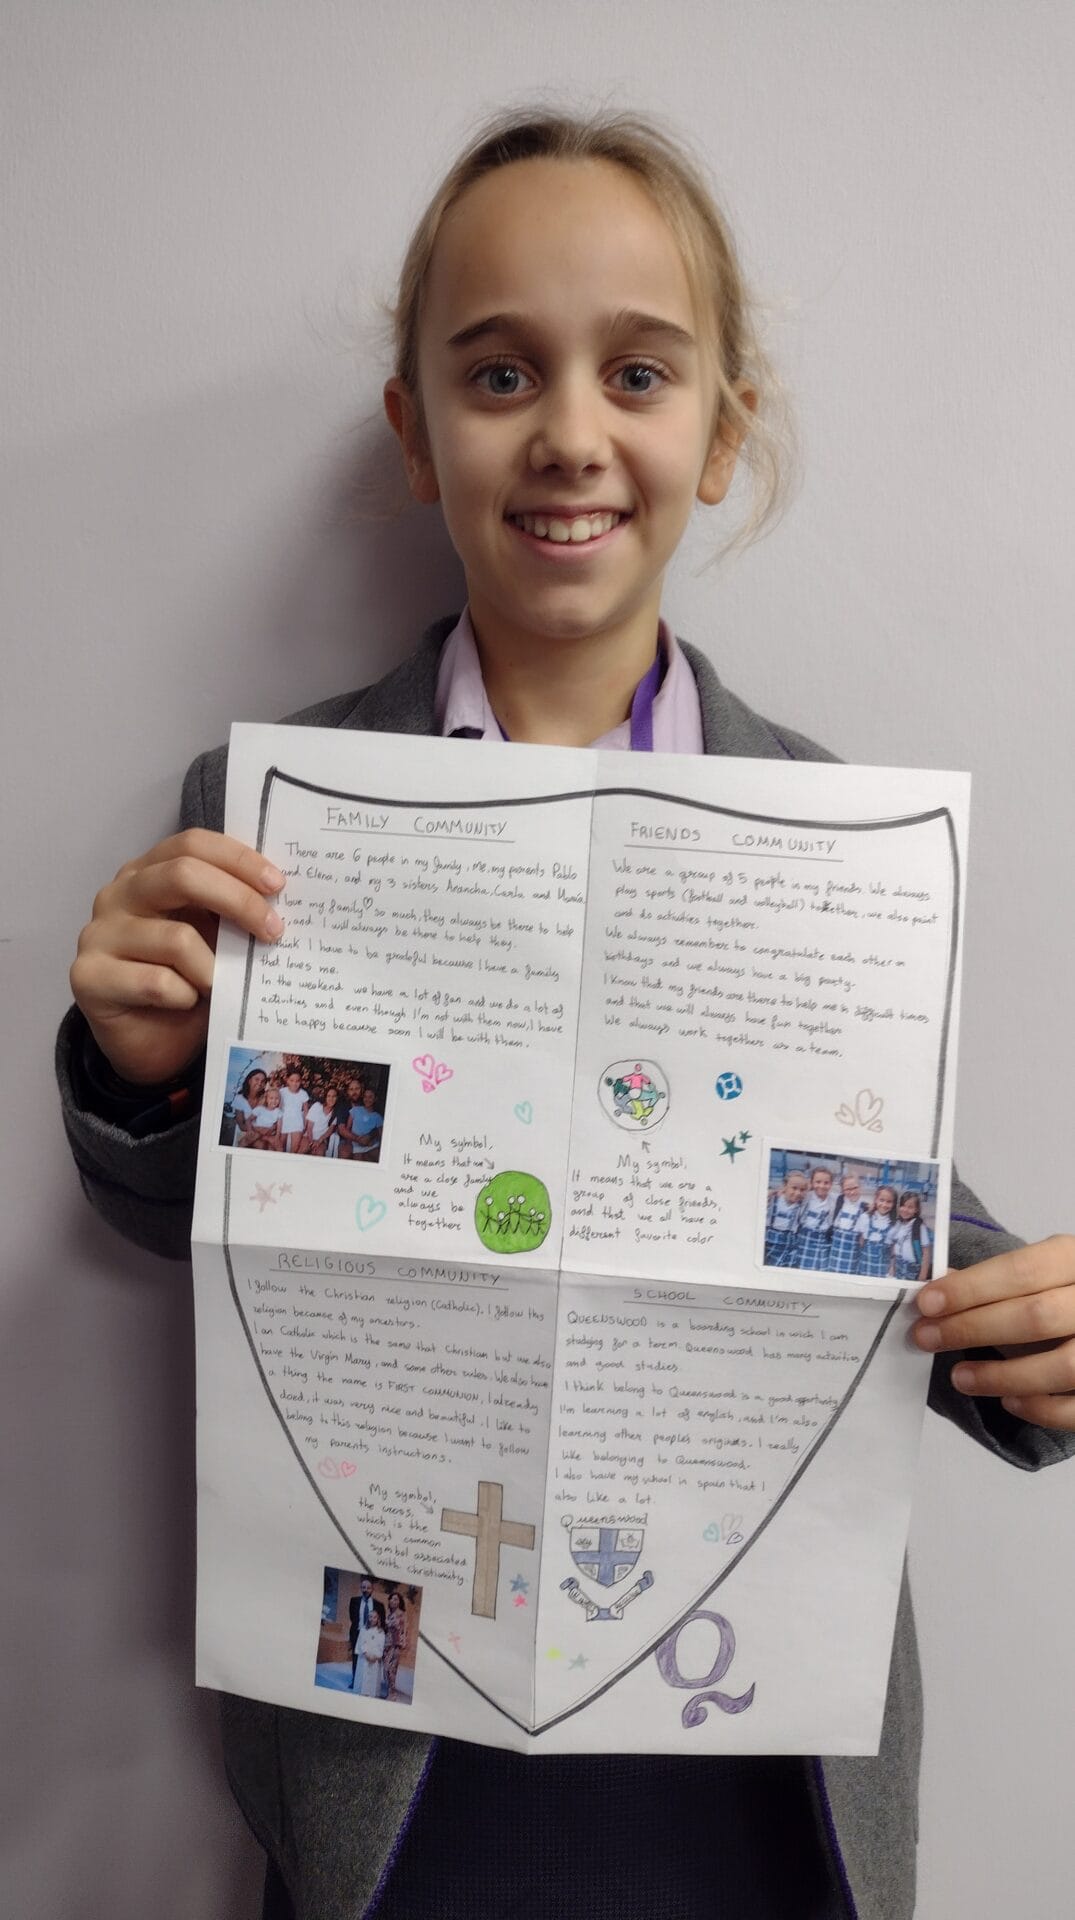 FAMILY COMMUNITY
There are 6 people in my family, me, my parents Pablo
and Elena, and my 3 sisters Arancha, Carla and María.
I love my family so much, they always be there to help
, and I will always be there to help they.
think I have to be grateful because I have a family
that loves me.
In the weekend we have a lot of fun and we do a lot of
activities and even though I'm not with them now, I have
to be happy because soon I will be with them.
My symbol,
It means that we
are a close family
and we
always be
together
FRIENDS COMMUNITY
We are a group of 5 people in my friends. We always
play sports (football and volleyball) together, we also paint
and do activities together.
We always remember to congratulate each other on
birthdays and we always have a big party.
I know that my friends are there to help me in difficult times
and that we will always have fun together
We always work together as a team.
My symbol,
It means that we are a
group of close friends,
and that we all have a
different favorite color
RELIGIOUS COMMUNITY
I follow the Christian religion (Catholic). I follow this
religion because of my ancestors.
I an Catholic which is the same that Christian but we also
have the Virgin Mary, and some other rules. We also have
a thing the name is FIRST COMMUNION, I already
doed, it was very nice and beautiful. I like to
belong to this religion because I want to follow
my parents instructions.
My symbol,
the cross,
which is the
most common
symbol associated
with christianity.
SCHOOL COMMUNITY
QUEENSWOOD is a boarding school in wich I am
studying for a term. Queenswood has many activities
and good studies.
I think belong to Queenswood is a good opportunity
I'm learning a lot of english, and I'm also
learning other people's origins. I really
like belonging to Queenswood.
I also have my school in spain that I
also like a lot.
Queenswood
Q